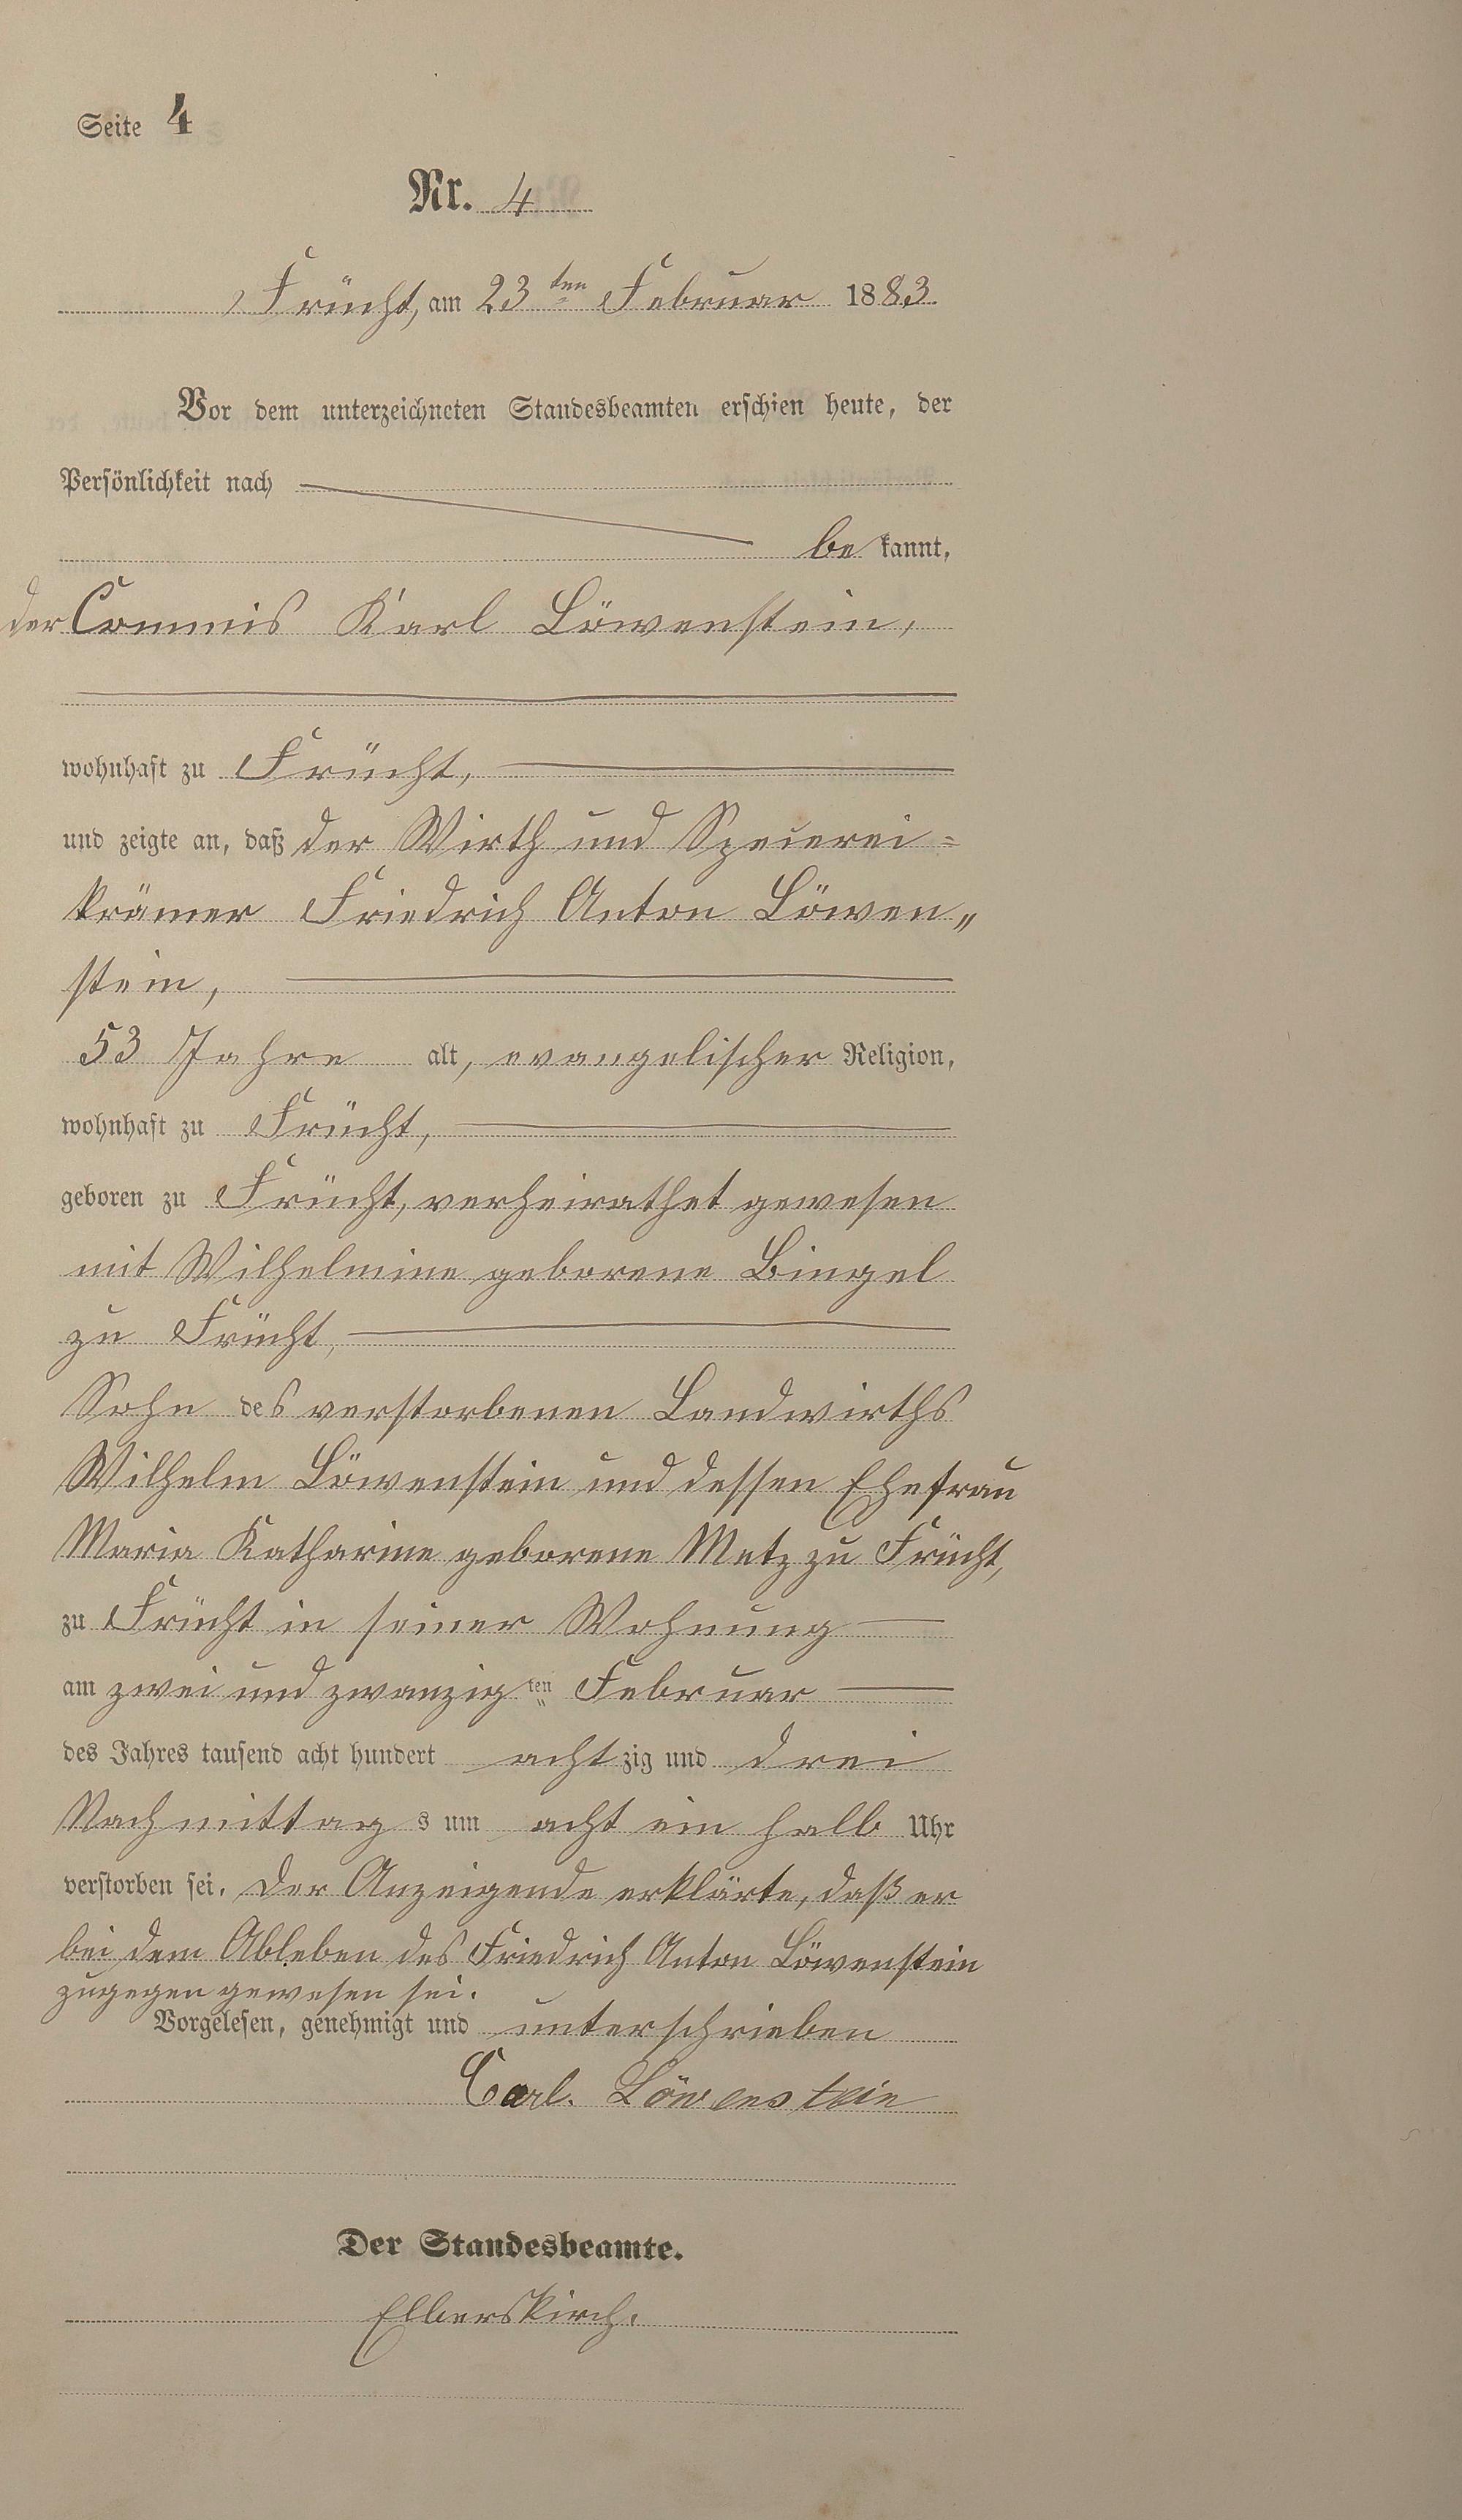 Seite 4
Nr. 4
Frücht, am 23ten Februar 1883.
Vor dem unterzeichneten Standesbeamten erschien heute, der
Persönlichkeit nach
be kannt,
der Commis Karl Löwenstein,
wohnhaft zu Frücht,
und zeigte an, daß der Wirth und Spezerei=
krämer Friedrich Anton Löwen„
stein,
53 Jahre alt, evangelischer Religion,
wohnhaft zu Frücht,
geboren zu Frücht, verheirathet gewesen
mit Wilhelmine geborene Bingel
zu Frücht,
Sohn des verstorbenen Landwirths
Wilhelm Löwenstein und dessen Ehefrau
Maria Katharine geborene Metz zu Frücht,
zu Frücht in seiner Wohnung
am zwei und zwanzigten Februar
des Jahres tausend acht hundert achtzig und drei
Nachmittags um acht ein halb Uhr
verstorben sei. Der Anzeigende erklärte, daß er
bei dem Ableben des Friedrich Anton Löwenstein
zugegen gewesen sei.
Vorgelesen, genehmigt und unterschrieben
Carl. Löwenstein
Der Standesbeamte.
Elberskirch.